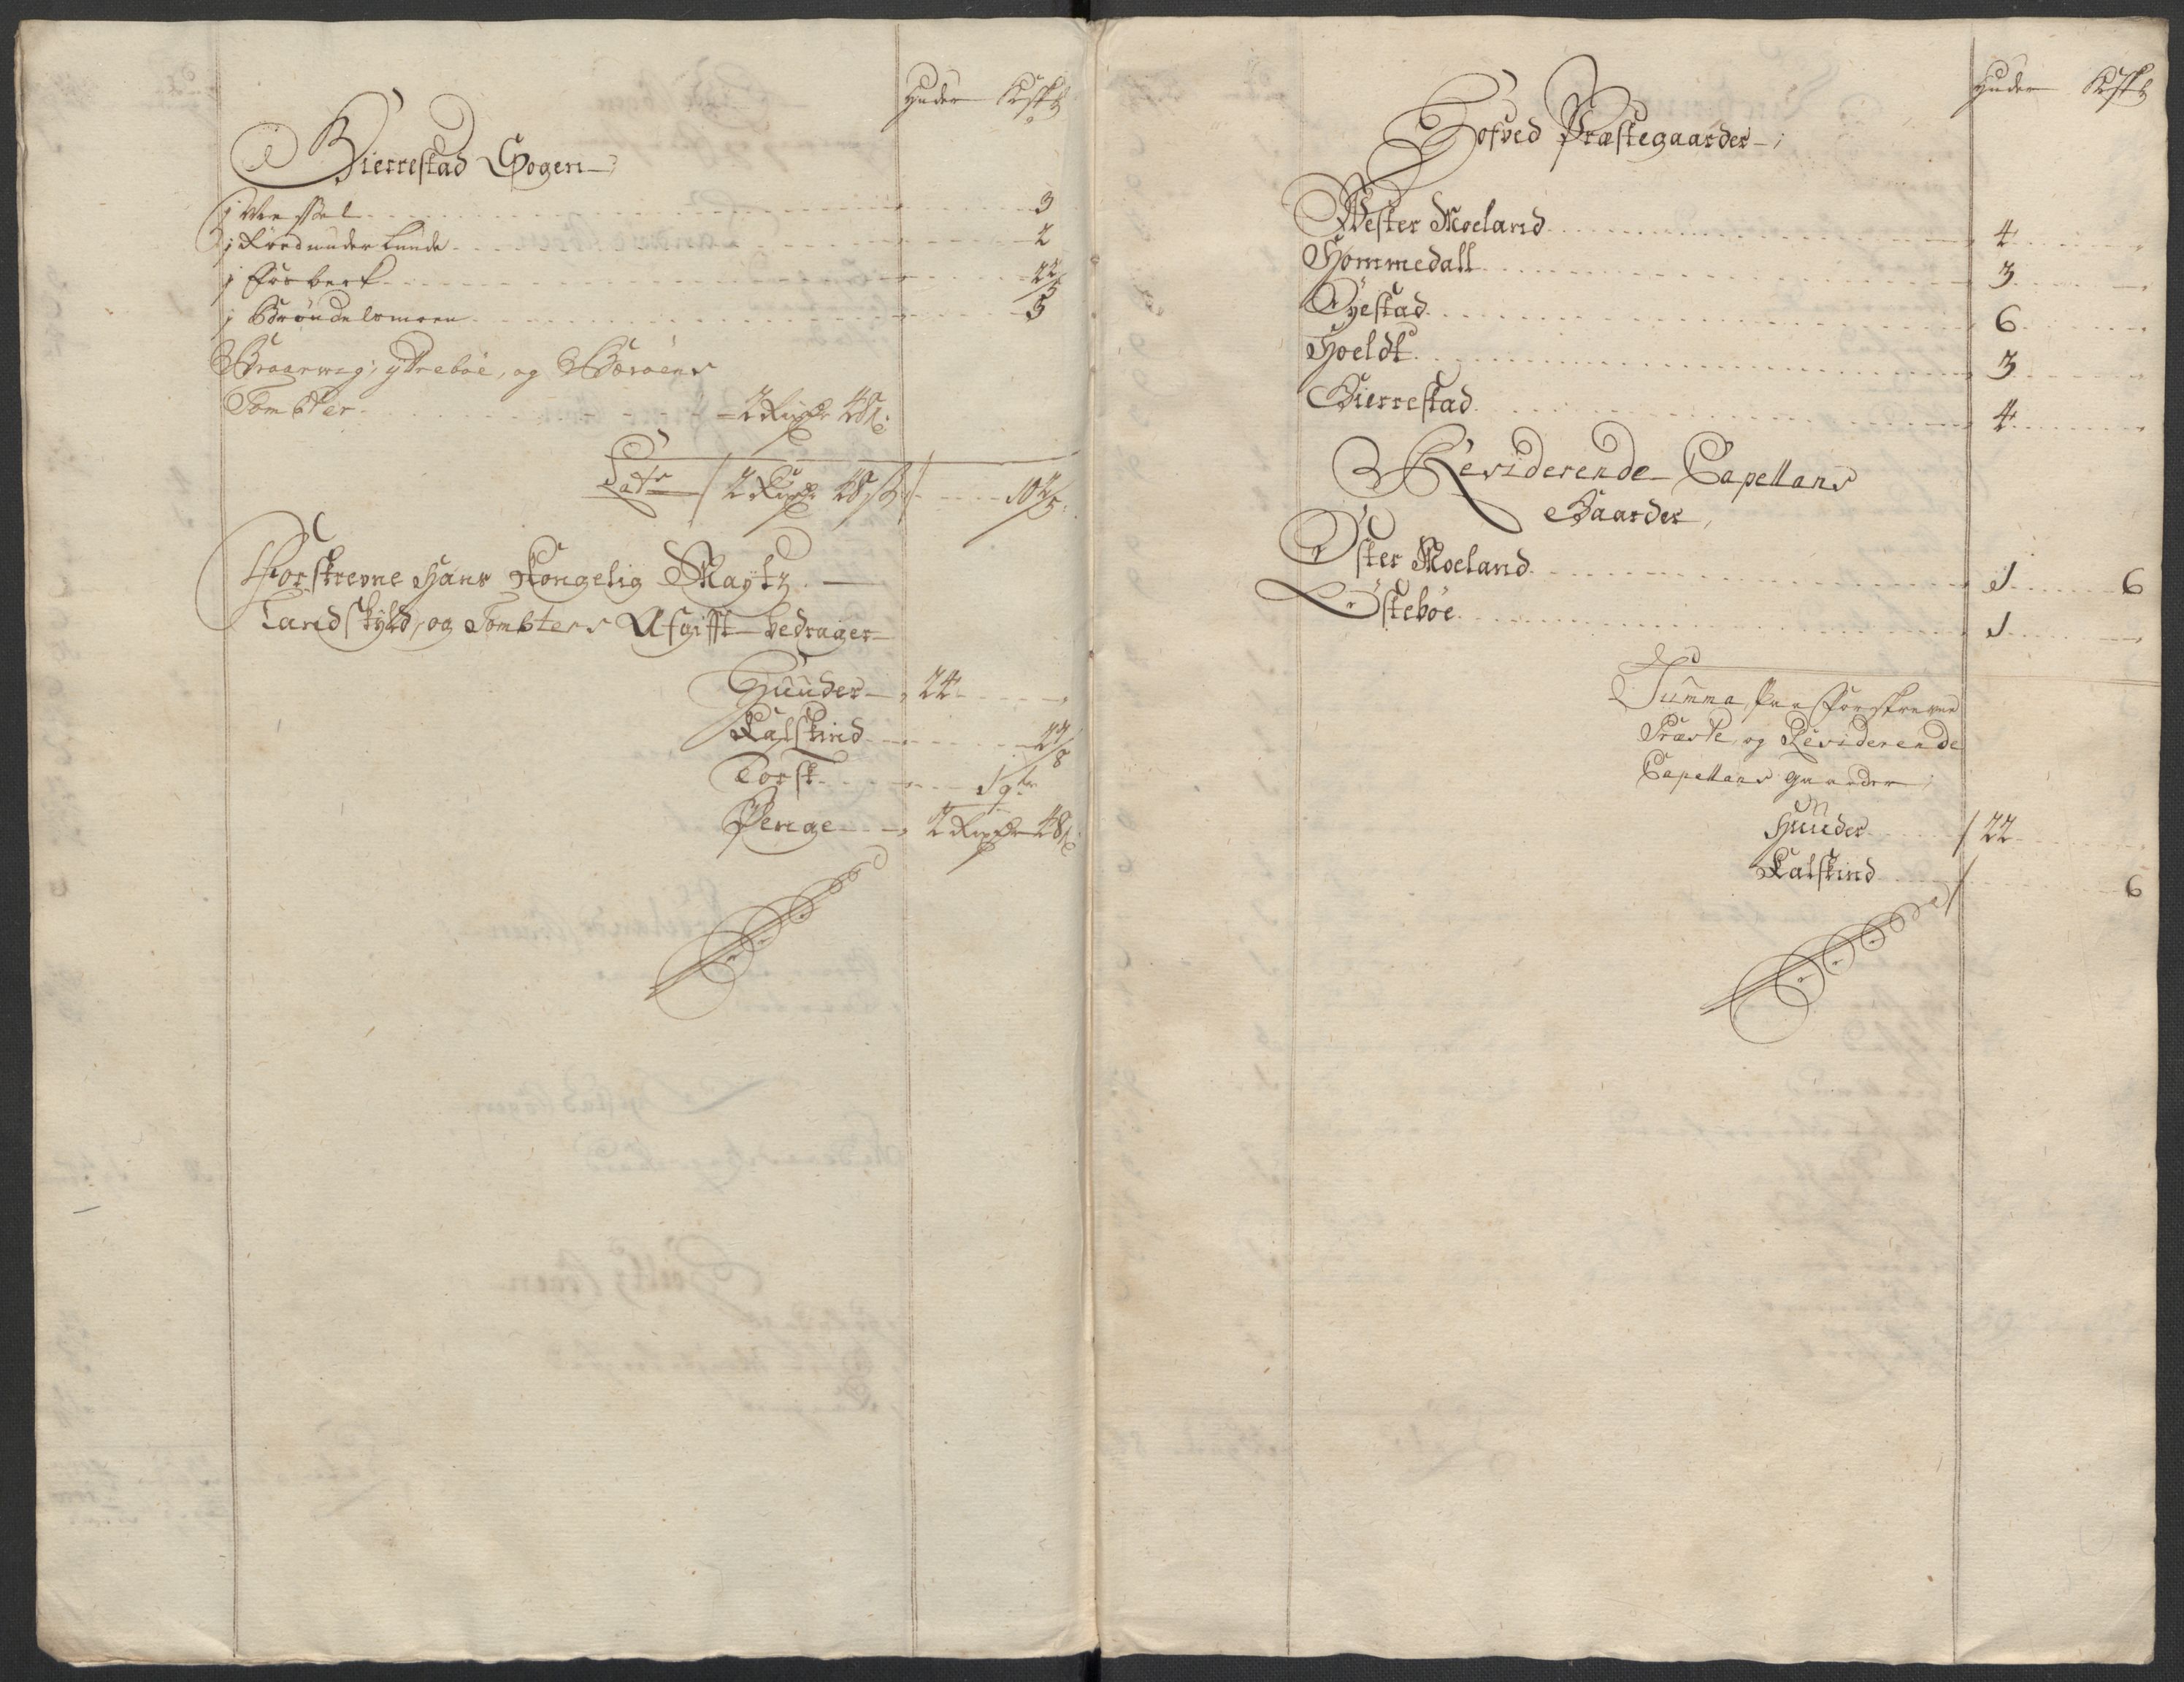 Huder Kskd
Bierrestad Sogen
j Messel 3
j Lunde 2
j 2 2/5
j Brøndelsmoen 3
Braarwig, yttrebøe, og Børøens
Tombter 2 Rixdr 48 s:
Lats 2 Rixdr 48 s 10 2/5:
Forskrevne Hans Kongelig Maytz.
Landskyld, og Tombters Afgifft bedrager
Huuder 24
Kalskind
Torsk 1 qtr
Penge 2 Rixdr 48 s:
Huder Kskd
Hofved Præstegaarder
Wester Moeland 4
Hommedall 3
Øyestad 6
Hoeldt 3
Bierrestad 4
Residerende Capellans
Gaarder,
Øster Moeland 1 6
Østebøe 1
Summa Paa Forskrevne
Præste, og Residerende
Capellans gaarder
Huuder 22
Kalskind 6